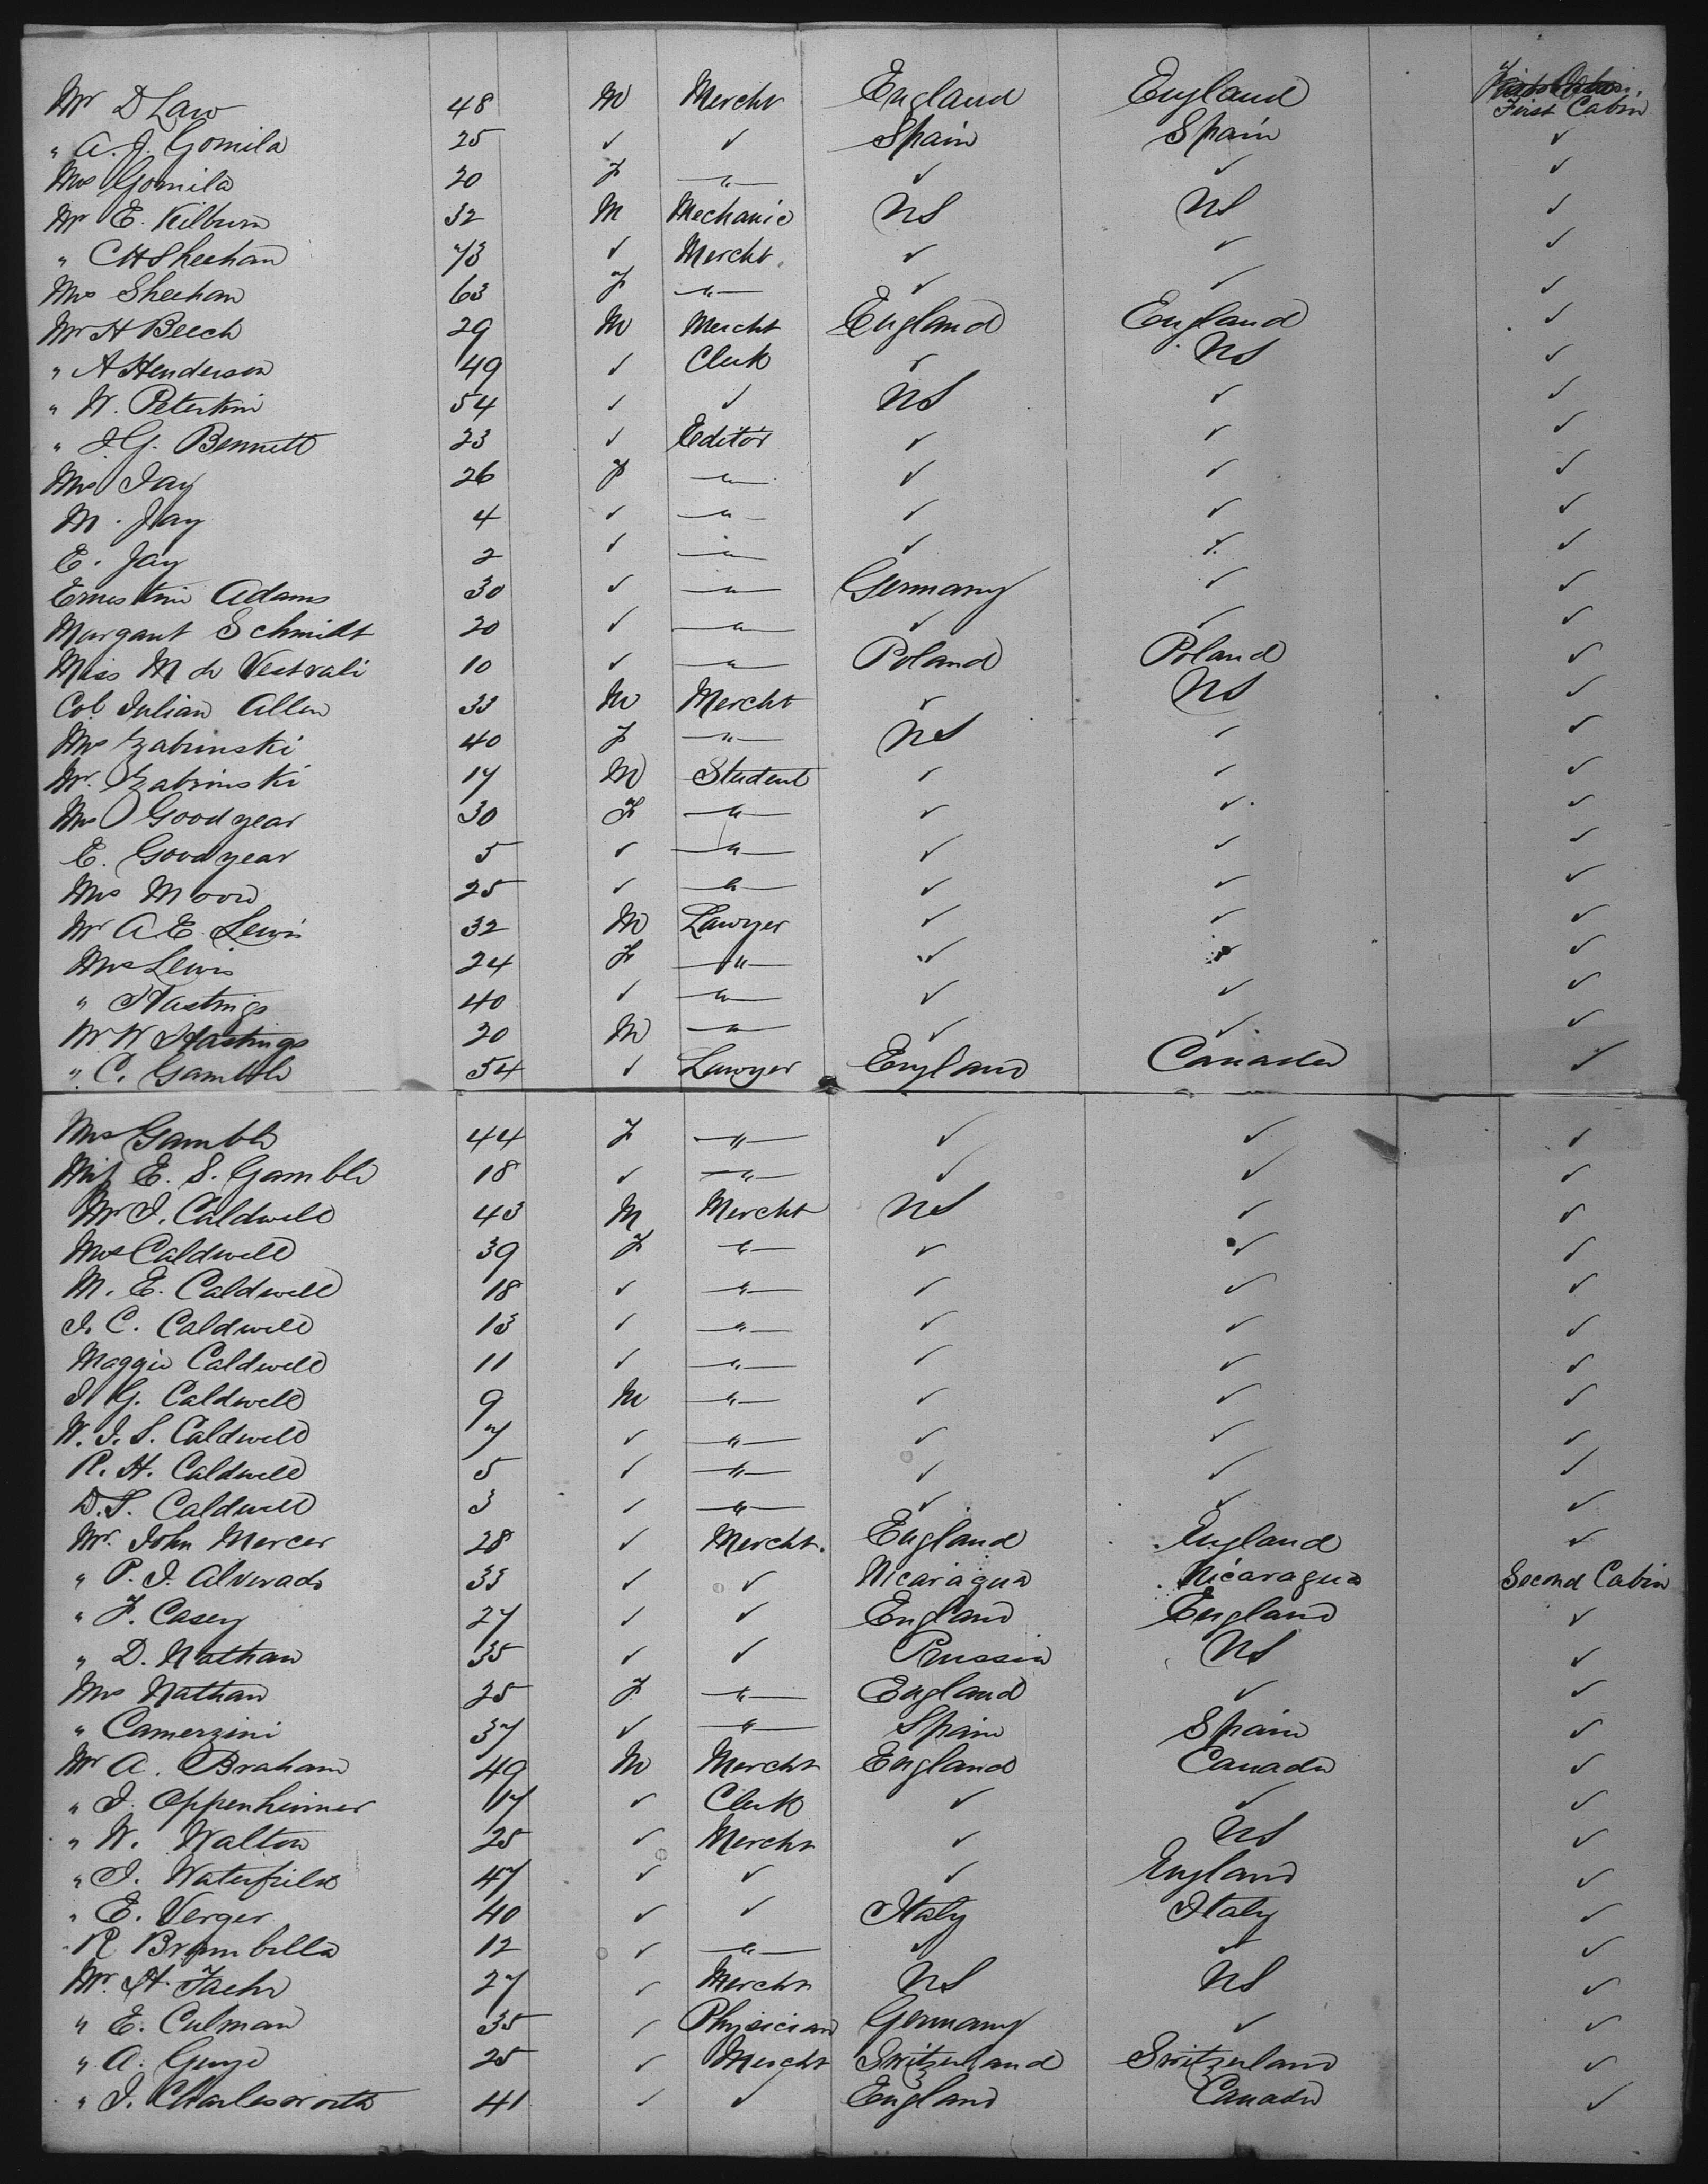 First Cabin
Mr D Law 48 M Mercht England England First Cabin
" A. J. Gomila 25 ✓ ✓ Spain Spain ✓
Mrs Gomila 20 F —"— ✓ ✓ ✓
Mr E. Kilburn 32 M Mechanic US US ✓
" C H Sheehan 73 ✓ Mercht ✓ ✓ ✓
Mrs Sheehan 63 F —"— ✓ ✓ ✓
Mr H Beech 29 M Mercht England England ✓
" A Henderson 49 ✓ Clerk ✓ US ✓
" W. Peterkin 54 ✓ ✓ US ✓ ✓
" J. G. Bennett 23 ✓ Editor ✓ ✓ ✓
Mrs Jay 26 F —"— ✓ ✓ ✓
M. Jay 4 ✓ —"— ✓ ✓ ✓
E. Jay 2 ✓ —"— ✓ ✓ ✓
Ernestine Adams 30 ✓ —"— Germany ✓ ✓
Margaret Schmidt 20 ✓ —"— ✓ ✓ ✓
Miss M de Vestvali 10 ✓ —"— Poland Poland ✓
Col Julian Allen 33 M Mercht ✓ US ✓
Mrs Zabrinski 40 F —"— US ✓ ✓
Mr. Zabrinski 17 M Student ✓ ✓ ✓
Mrs Goodyear 30 F —"— ✓ ✓ ✓
E. Goodyear 5 ✓ —"— ✓ ✓ ✓
Mrs Moore 25 ✓ —"— ✓ ✓ ✓
Mr A. E. Lewis 32 M Lawyer ✓ ✓ ✓
Mrs Lewis 24 F —"— ✓ ✓ ✓
" Hastings 40 ✓ —"— ✓ ✓ ✓
Mr W Hastings 20 M —"— ✓ ✓ ✓
" C. Gamble 54 ✓ Lawyer England Canada ✓
Mrs Gamble 44 F —"— ✓ ✓ ✓
Miss E. S. Gamble 18 ✓ —"— ✓ ✓ ✓
Mr J. Caldwell 43 M Mercht US ✓ ✓
Mrs Caldwell 39 F —"— ✓ ✓ ✓
M. E. Caldwell 18 ✓ —"— ✓ ✓ ✓
J. C. Caldwell 13 ✓ —"— ✓ ✓ ✓
Maggie Caldwell 11 ✓ —"— ✓ ✓ ✓
J. G. Caldwell 9 M —"— ✓ ✓ ✓
W. J. S. Caldwell 7 ✓ —"— ✓ ✓ ✓
R. H. Caldwell 5 ✓ —"— ✓ ✓ ✓
D. S. Caldwell 3 ✓ —"— ✓ ✓ ✓
Mr. John Mercer 28 ✓ Mercht. England England ✓
" P. J. Alverado 33 ✓ ✓ Nicaragua Nicaragua Second Cabin
" J. Casey 27 ✓ ✓ England England ✓
" D. Nathan 35 ✓ ✓ Prussia US ✓
Mrs Nathan 25 F —"— England ✓ ✓
" Camerzini 37 ✓ —"— Spain Spain ✓
Mr A. Braham 49 M Mercht England Canada ✓
" J. Oppenheimer 17 ✓ Clerk ✓ ✓ ✓
" W. Walton 25 ✓ Mercht ✓ US ✓
" J. Waterfield 47 ✓ ✓ ✓ England ✓
" E. Verger 40 ✓ ✓ Italy Italy ✓
" R Brambilla 12 ✓ —"— ✓ ✓ ✓
Mr. H. 27 ✓ Mercht US US ✓
" E. Culman 35 ✓ Physician Germany ✓ ✓
" A. 25 ✓ Mercht Switzerland Switzerland ✓
" J. Charlesworth 41 ✓ ✓ England Canada ✓